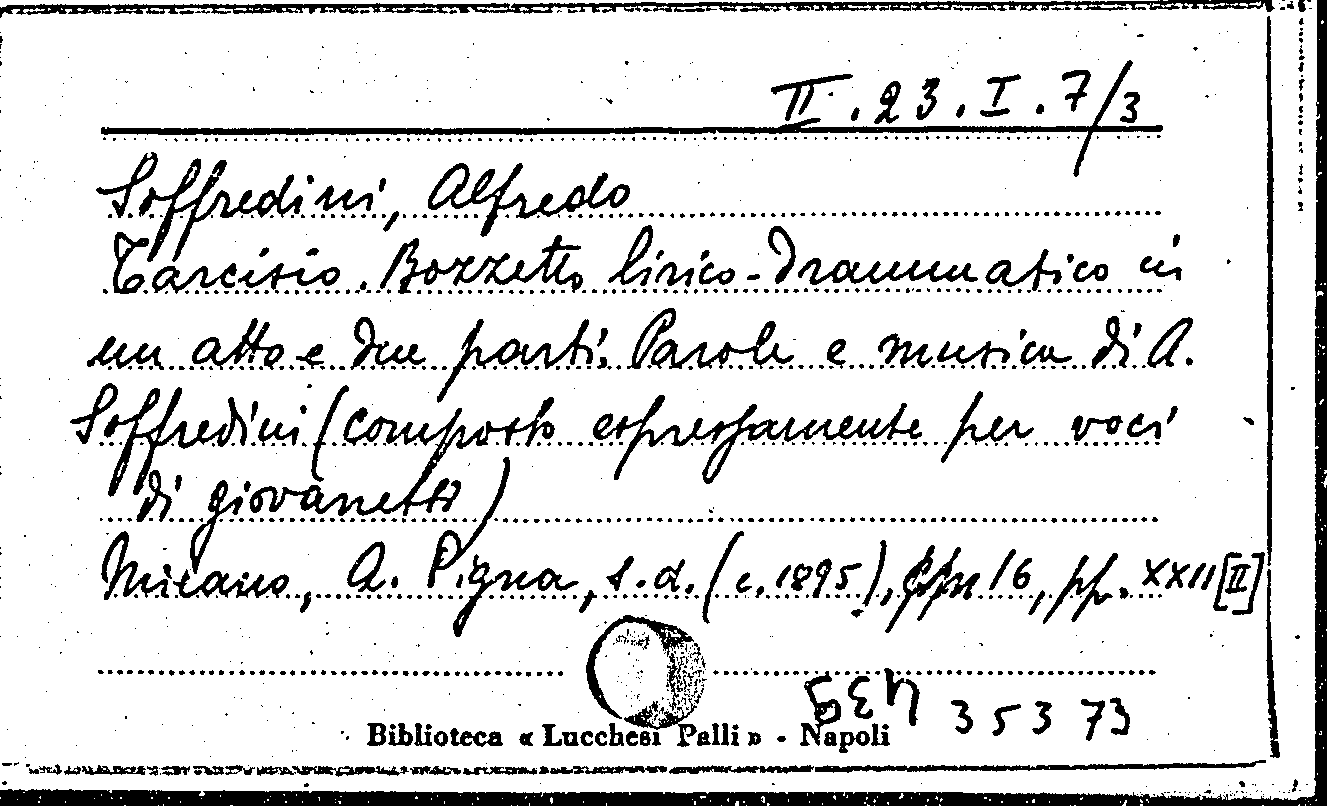 II.23.I.7/3
Soffredini, Alfredo
Tarcisio. Bozzetto lirico-Drammatico in
un atto e due parti. Parole e musica di A.
Soffredini (composto espressamente per voci
di giovanetti)
Milano, A. Pigna, s.d. (c.1895), 16, pp. XXII[II]
35373
Biblioteca « Lucchesi Palli » - Napoli